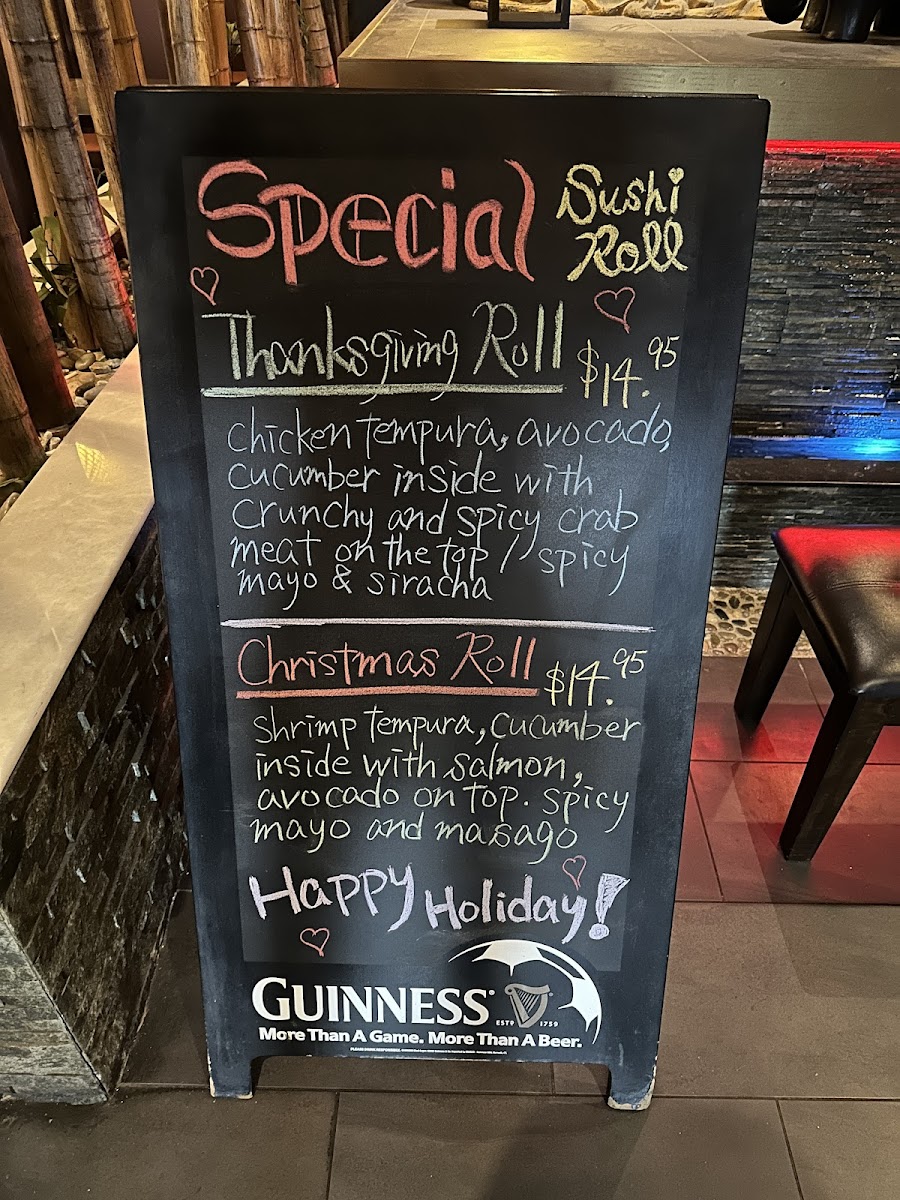 Special Sushi Roll
Thanksgiving Roll $14.95
chicken tempura, avocado,
cucumber inside with
crunchy and spicy crab
meat on the top / spicy
mayo & siracha
Christmas Roll $14.95
shrimp tempura, cucumber
inside with salmon,
avocado on top. spicy
mayo and masago
Happy Holiday!
GUINNESS®
ESTD 1759
More Than A Game. More Than A Beer.